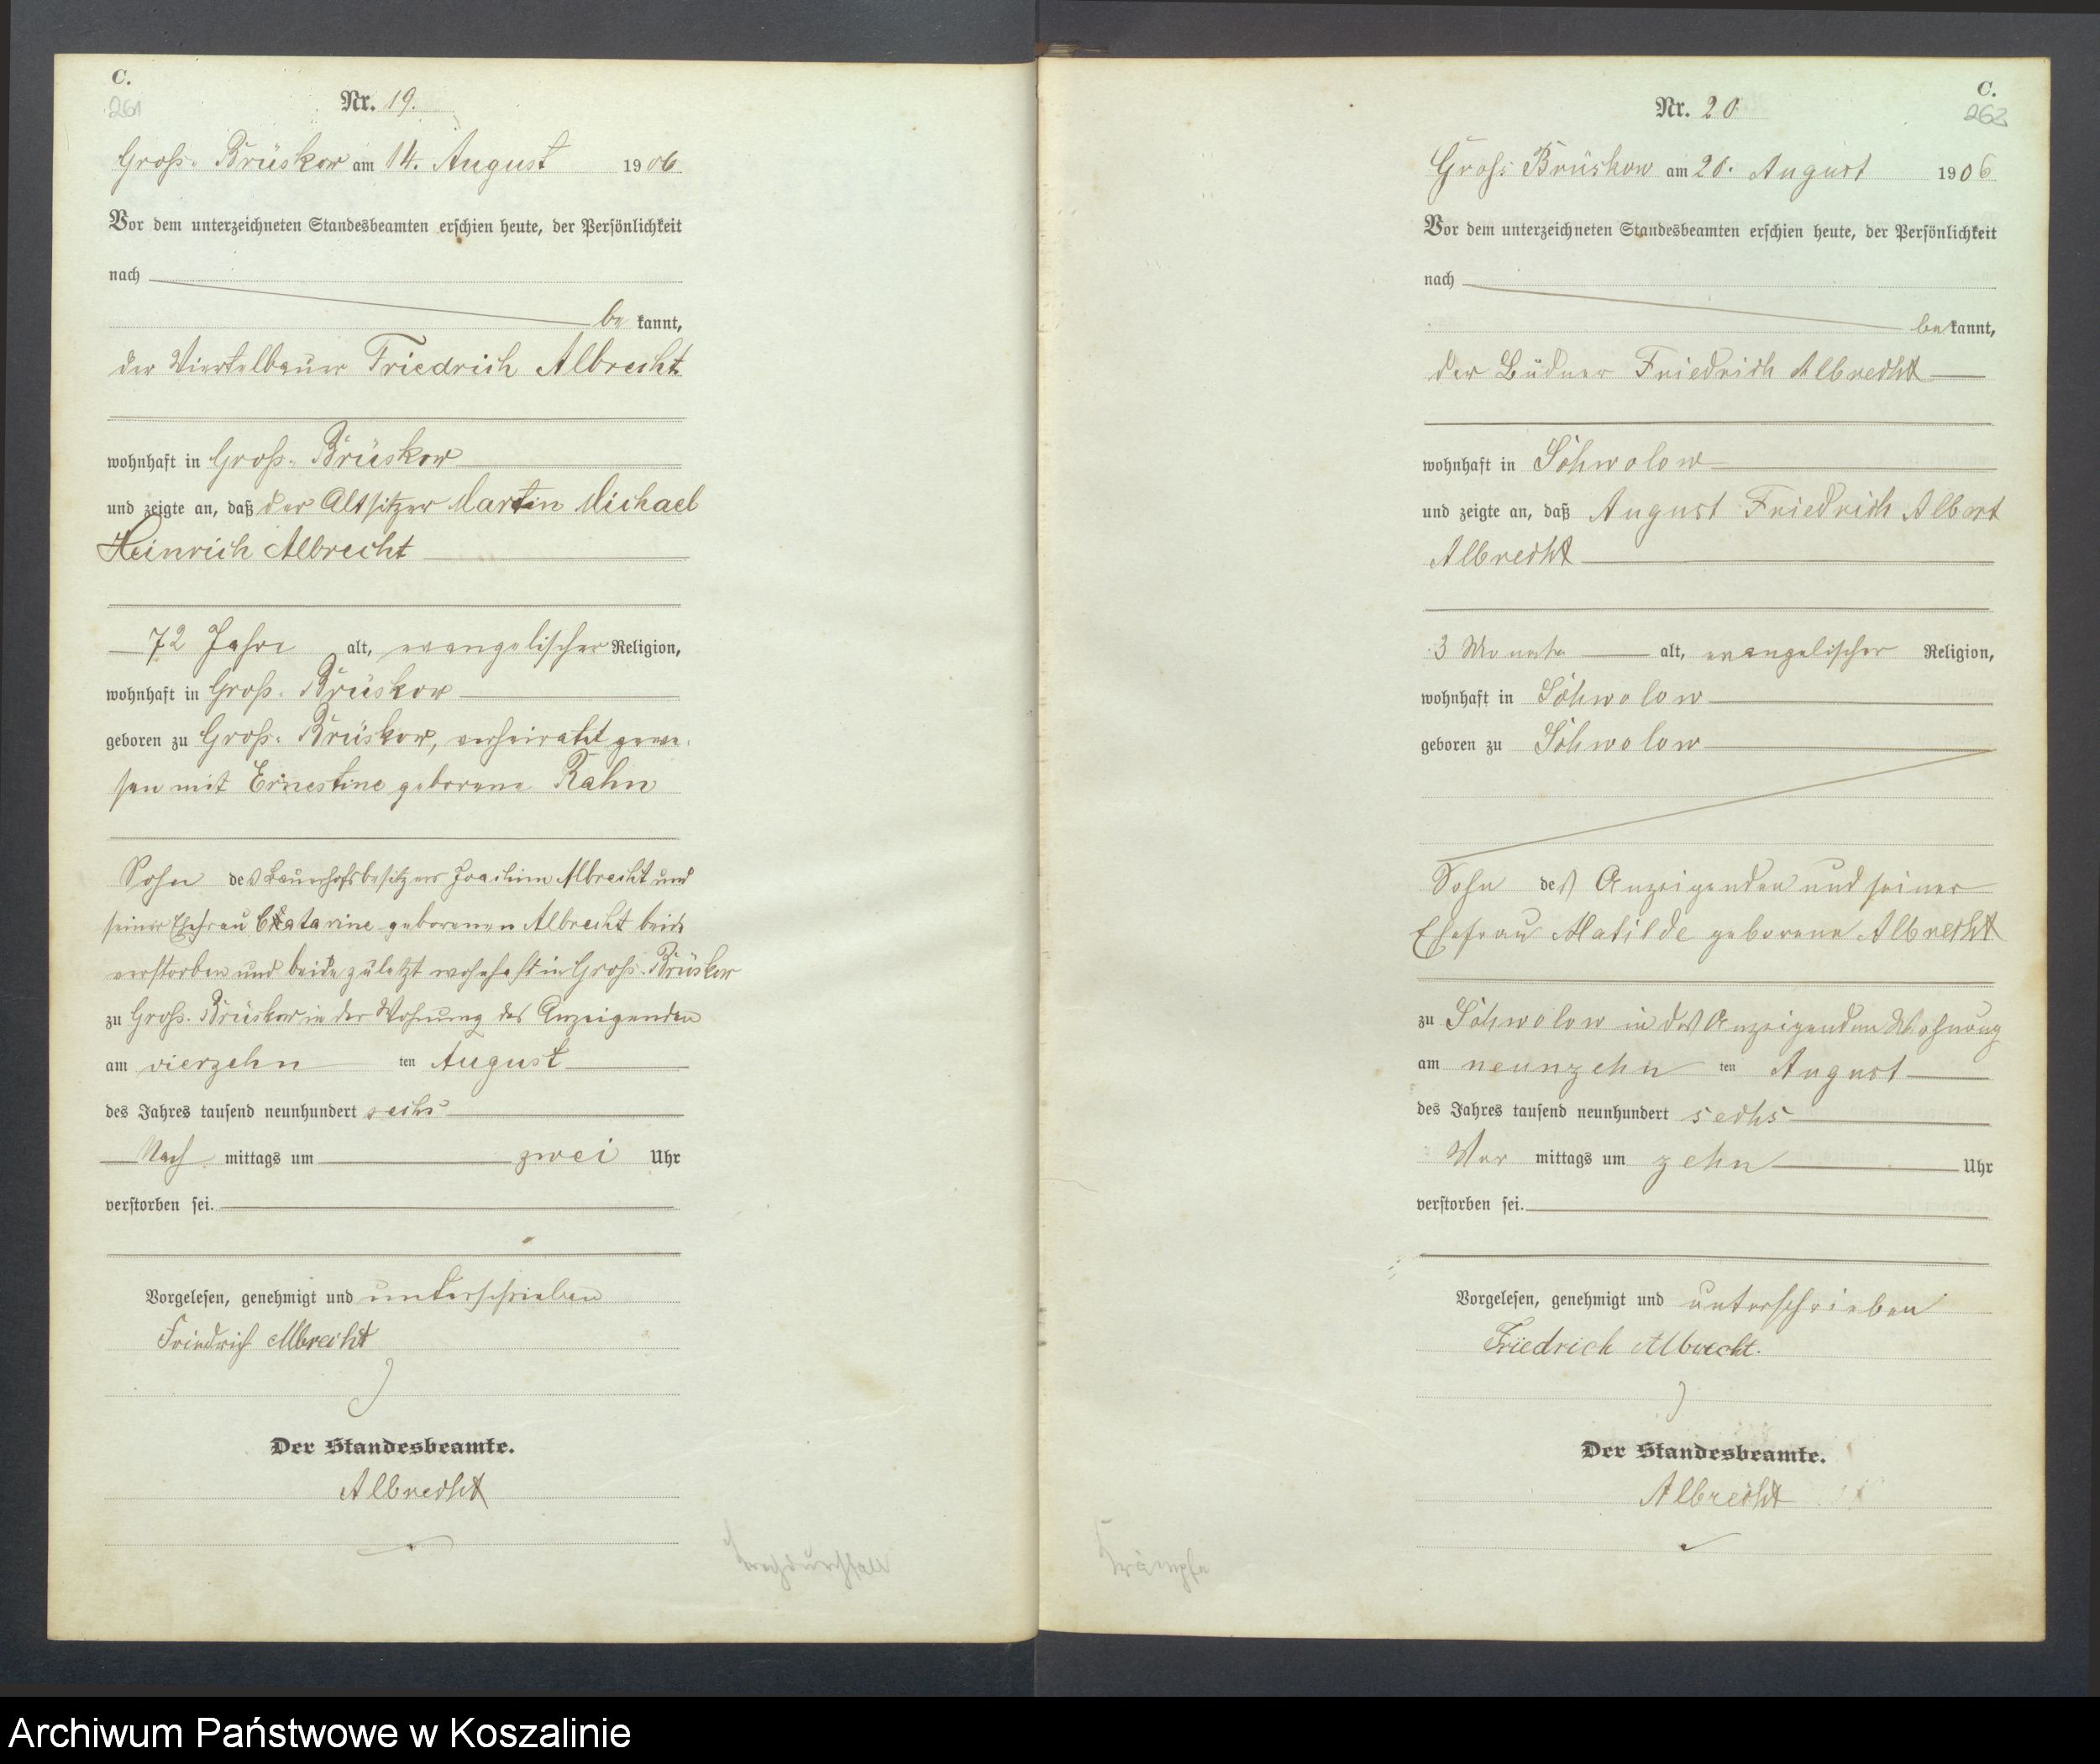 C.
261
Nr. 19.
Groß-Brüskow am 14. August 1906
Vor dem unterzeichneten Standesbeamten erschien heute, der Persönlichkeit
nach
be kannt,
der Viertelbauer Friedrich Albrecht
wohnhaft in Groß-Brüskow
und zeigte an, daß der Altsitzer Martin Michael
Heinrich Albrecht
72 Jahre alt, evangelischer Religion,
wohnhaft in Groß-Brüskow
geboren zu Groß-Brüskow, verheiratet gewe-
sen mit Ernestine geborene Rahn
Sohn des Bauerhofsbesitzers Joachim Albrecht und
seiner Ehefrau Katarine geborenen Albrecht beide
verstorben und beide zuletzt wohnhaft in Groß-Brüskow
zu Groß-Brüskow in der Wohnung des Anzeigenden
am vierzehn ten August
des Jahres tausend neunhundert sechs
Nach mittags um zwei Uhr
verstorben sei.
Vorgelesen, genehmigt und unterschrieben
Friedrich Albrecht
Der Standesbeamte.
Albrecht
Brechdurchfall
C.
263
Nr. 20
Groß Brüskow am 20. August 1906
Vor dem unterzeichneten Standesbeamten erschien heute, der Persönlichkeit
nach
be kannt,
der Büdner Friedrich Albrecht
wohnhaft in Schwolow
und zeigte an, daß August Friedrich Albert
Albrecht
3 Monate alt, evangelischer Religion,
wohnhaft in Schwolow
geboren zu Schwolow
Sohn des Anzeigenden und seiner
Ehefrau Matilde geborene Albrecht
zu Schwolow in des Anzeigenden Wohnung
am neunzehn ten August
des Jahres tausend neunhundert sechs
Vor mittags um zehn Uhr
verstorben sei.
Vorgelesen, genehmigt und unterschrieben
Friedrich Albrecht.
Der Standesbeamte.
Albrecht
Krämpfe
Archiwum Państwowe w Koszalinie